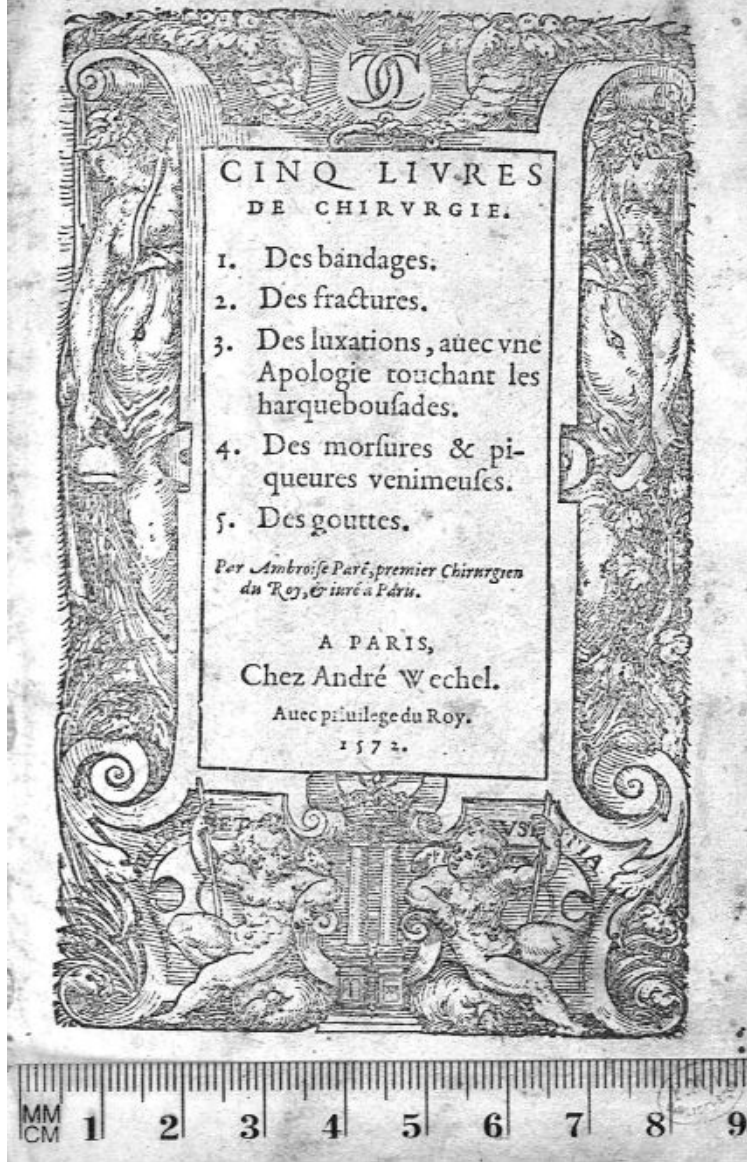 CINQ LIVRES
DE CHIRVRGIE.
1. Des bandages.
2. Des fractures.
3. Des luxations, auec vne
Apologie touchant les
harquebouſades.
4. Des morſures & pi-
queures venimeuſes.
5. Des gouttes.
Par Ambroiſe Paré, premier Chirurgien
du Roy, & iuré a Paris.
A PARIS,
Chez André Wechel.
Auec priuilege du Roy.
1572.
ET
MM
CM 1 2 3 4 5 6 7 8 9